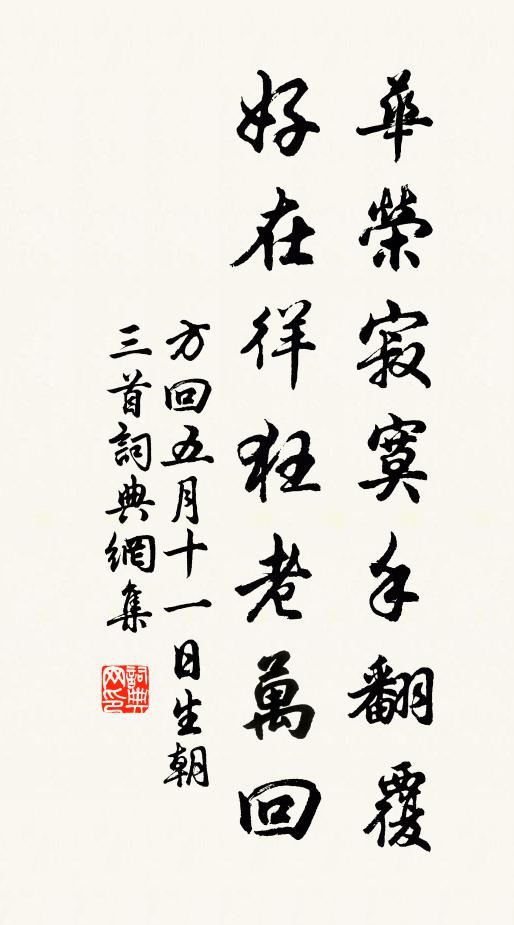 華榮寂寞手翻覆
好在徉狂老萬回
方回五月十一日生朝
三首詞典網集
詞典網印